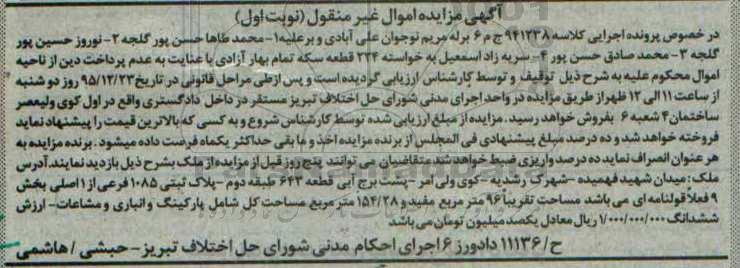 آگهی مزایده اموال غیر منقول (نوبت اول)
در خصوص پرونده اجرایی کلاسه 941238 ج م 6 برله مریم نوجوان علی آبادی و برعلیه 1- محمد طاها حسن پور گلجه 2- نوروز حسین پور
گلجه 3- محمد صادق حسن پور 4- سریه زاد اسمعیل به خواسته 224 قطعه سکه تمام بهار آزادی با عنایت به عدم پرداخت دین از ناحیه
اموال محکوم علیه به شرح ذیل توقیف و توسط کارشناس ارزیابی گردیده است و پس از طی مراحل قانونی در تاریخ 95/12/23 روز دو شنبه
از ساعت 11 الی 12 ظهر از طریق مزایده در واحد اجرای مدنی شورای حل اختلاف تبریز مستقر در داخل دادگستری واقع در اول کوی ولیعصر
ساختمان 4 شعبه 6 بفروش خواهد رسید. مزایده از مبلغ ارزیابی شده توسط کارشناس شروع و به کسی که بالاترین قیمت را پیشنهاد نماید
فروخته خواهد شد و ده درصد مبلغ پیشنهادی فی المجلس از برنده مزایده اخذ و ما بقی حداکثر یکماه فرصت داده میشود. برنده مزایده به
هر عنوان انصراف نماید ده درصد واریزی ضبط خواهد شد متقاضیان می توانند پنج روز قبل از مزایده از ملک بشرح ذیل بازدید نمایند. آدرس
ملک: میدان شهید فهمیده - شهرک رشدیه - کوی ولی امر - پشت برج آبی قطعه 643 طبقه دوم - پلاک ثبتی 1085 فرعی از 1 اصلی بخش
9 فعلا قولنامه ای می باشد مساحت تقریباً 96 متر مربع مفید و 154/28 متر مربع مساحت کل شامل پارکینگ و انباری و مشاعات - ارزش
ششدانگ 1/000/000/000 ریال معادل یکصد میلیون تومان می باشد
ح / 11136 دادورز 6 اجرای احکام مدنی شورای حل اختلاف تبریز - حبشی / هاشمی